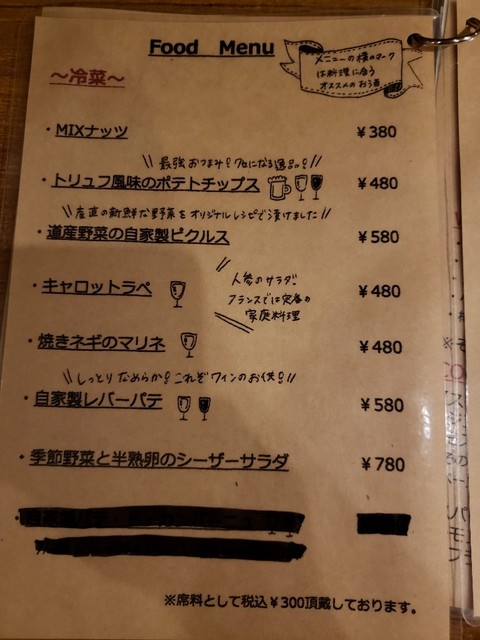 Food Menu
メニューの横のマーク
は料理に合う
オススメのお酒
～冷菜～
・MIXナッツ ￥380
\\ 最強おつまみ！クセになる逸品！ //
・トリュフ風味のポテトチップス ￥480
\\ 産直の新鮮な野菜をオリジナルレシピで漬けました //
・道産野菜の自家製ピクルス ￥580
・キャロットラペ ￥480
人参のサラダ！
フランスでは定番の
家庭料理
・焼きネギのマリネ ￥480
\\ しっとりなめらか！これぞワインのお供！ //
・自家製レバーパテ ￥580
・季節野菜と半熟卵のシーザーサラダ ￥780
※席料として税込￥300頂戴しております。